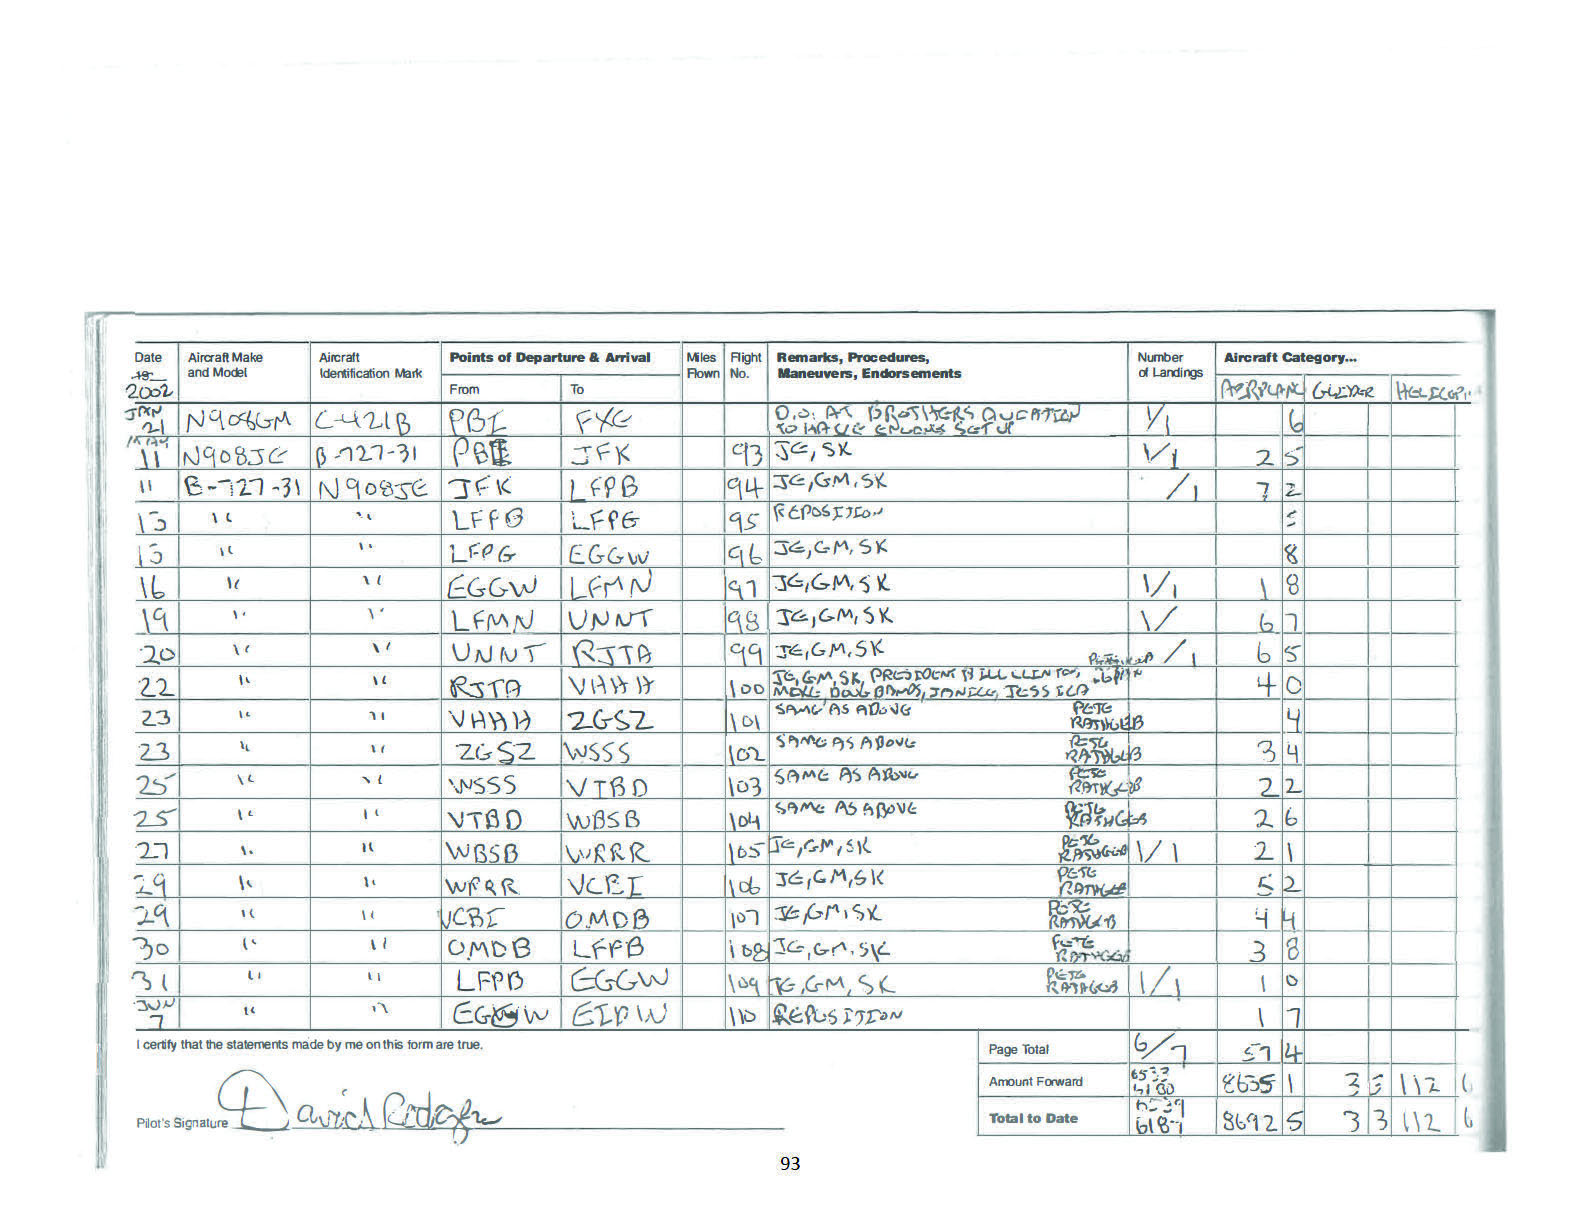 Date Aircraft Make Aircraft Points of Departure & Arrival Miles Flight Remarks, Procedures, Number Aircraft Category...
19 and Model Identification Mark From To Flown No. Maneuvers, Endorsements of Landings
2002 AIRPLANE GLIDER HELICOPT
JAN 21 N908GM C-421B PBI FXE TO HAVE ENGINES SET UP 1/1 6
MAY 11 N908JE B-727-31 PBI JFK 93 JE, SK 1/1 2 5
11 B-727-31 N908JE JFK LFPB 94 JE, GM, SK /1 7 2
13 " " LFPB LFPG 95 REPOSITION 5
15 " " LFPG EGGW 96 JE, GM, SK 8
16 " " EGGW LFMN 97 JE, GM, SK 1/1 1 8
19 " " LFMN UNNT 98 JE, GM, SK 1/ 6 7
20 " " UNNT RJTA 99 JE, GM, SK /1 6 5
22 " " RJTA VHHH 100 JE, GM, SK, PRESIDENT BILL CLINTON, 4 0
MIKE, DOUG BANDS, JANICE, JESSICA
23 " " VHHH ZGSZ 101 SAME AS ABOVE PETE RATHGEB 4
23 " " ZGSZ WSSS 102 SAME AS ABOVE PETE RATHGEB 3 4
25 " " WSSS VTBD 103 SAME AS ABOVE PETE RATHGEB 2 2
25 " " VTBD WBSB 104 SAME AS ABOVE PETE RATHGEB 2 6
27 " " WBSB WRRR 105 JE, GM, SK PETE RATHGEB 1/1 2 1
29 " " WRRR VCBI 106 JE, GM, SK PETE RATHGEB 5 2
29 " " VCBI OMDB 107 JE, GM, SK PETE RATHGEB 4 4
30 " " OMDB LFPB 108 JE, GM, SK PETE RATHGEB 3 8
31 " " LFPB EGGW 109 JE, GM, SK PETE RATHGEB 1/1 1 0
JUN 7 " " EGGW 110 REPOSITION 1 7
I certify that the statements made by me on this form are true. Page Total 6/7 57 4
Amount Forward 8635 1 3 3 112 6
Pilot's Signature David Rodgers Total to Date 8692 5 3 3 112 6
93